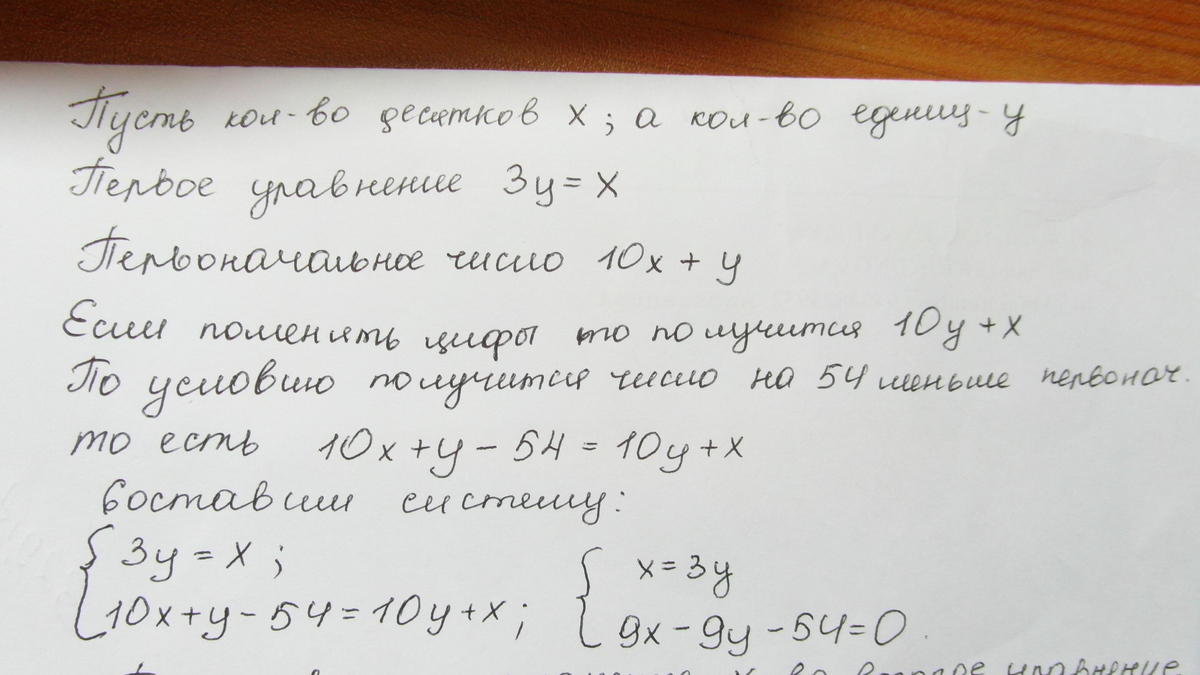 Пусть кол-во десятков x; а кол-во едениц - y
Первое уравнение 3y = x
Первоначальное число 10x + y
Если поменять цифры то получится 10y + x
По условию получится число на 54 меньше первонач.
то есть 10x + y - 54 = 10y + x
Составим систему:
{ 3y = x ; { x = 3y
10x + y - 54 = 10y + x ; 9x - 9y - 54 = 0 .
во второе уравнение